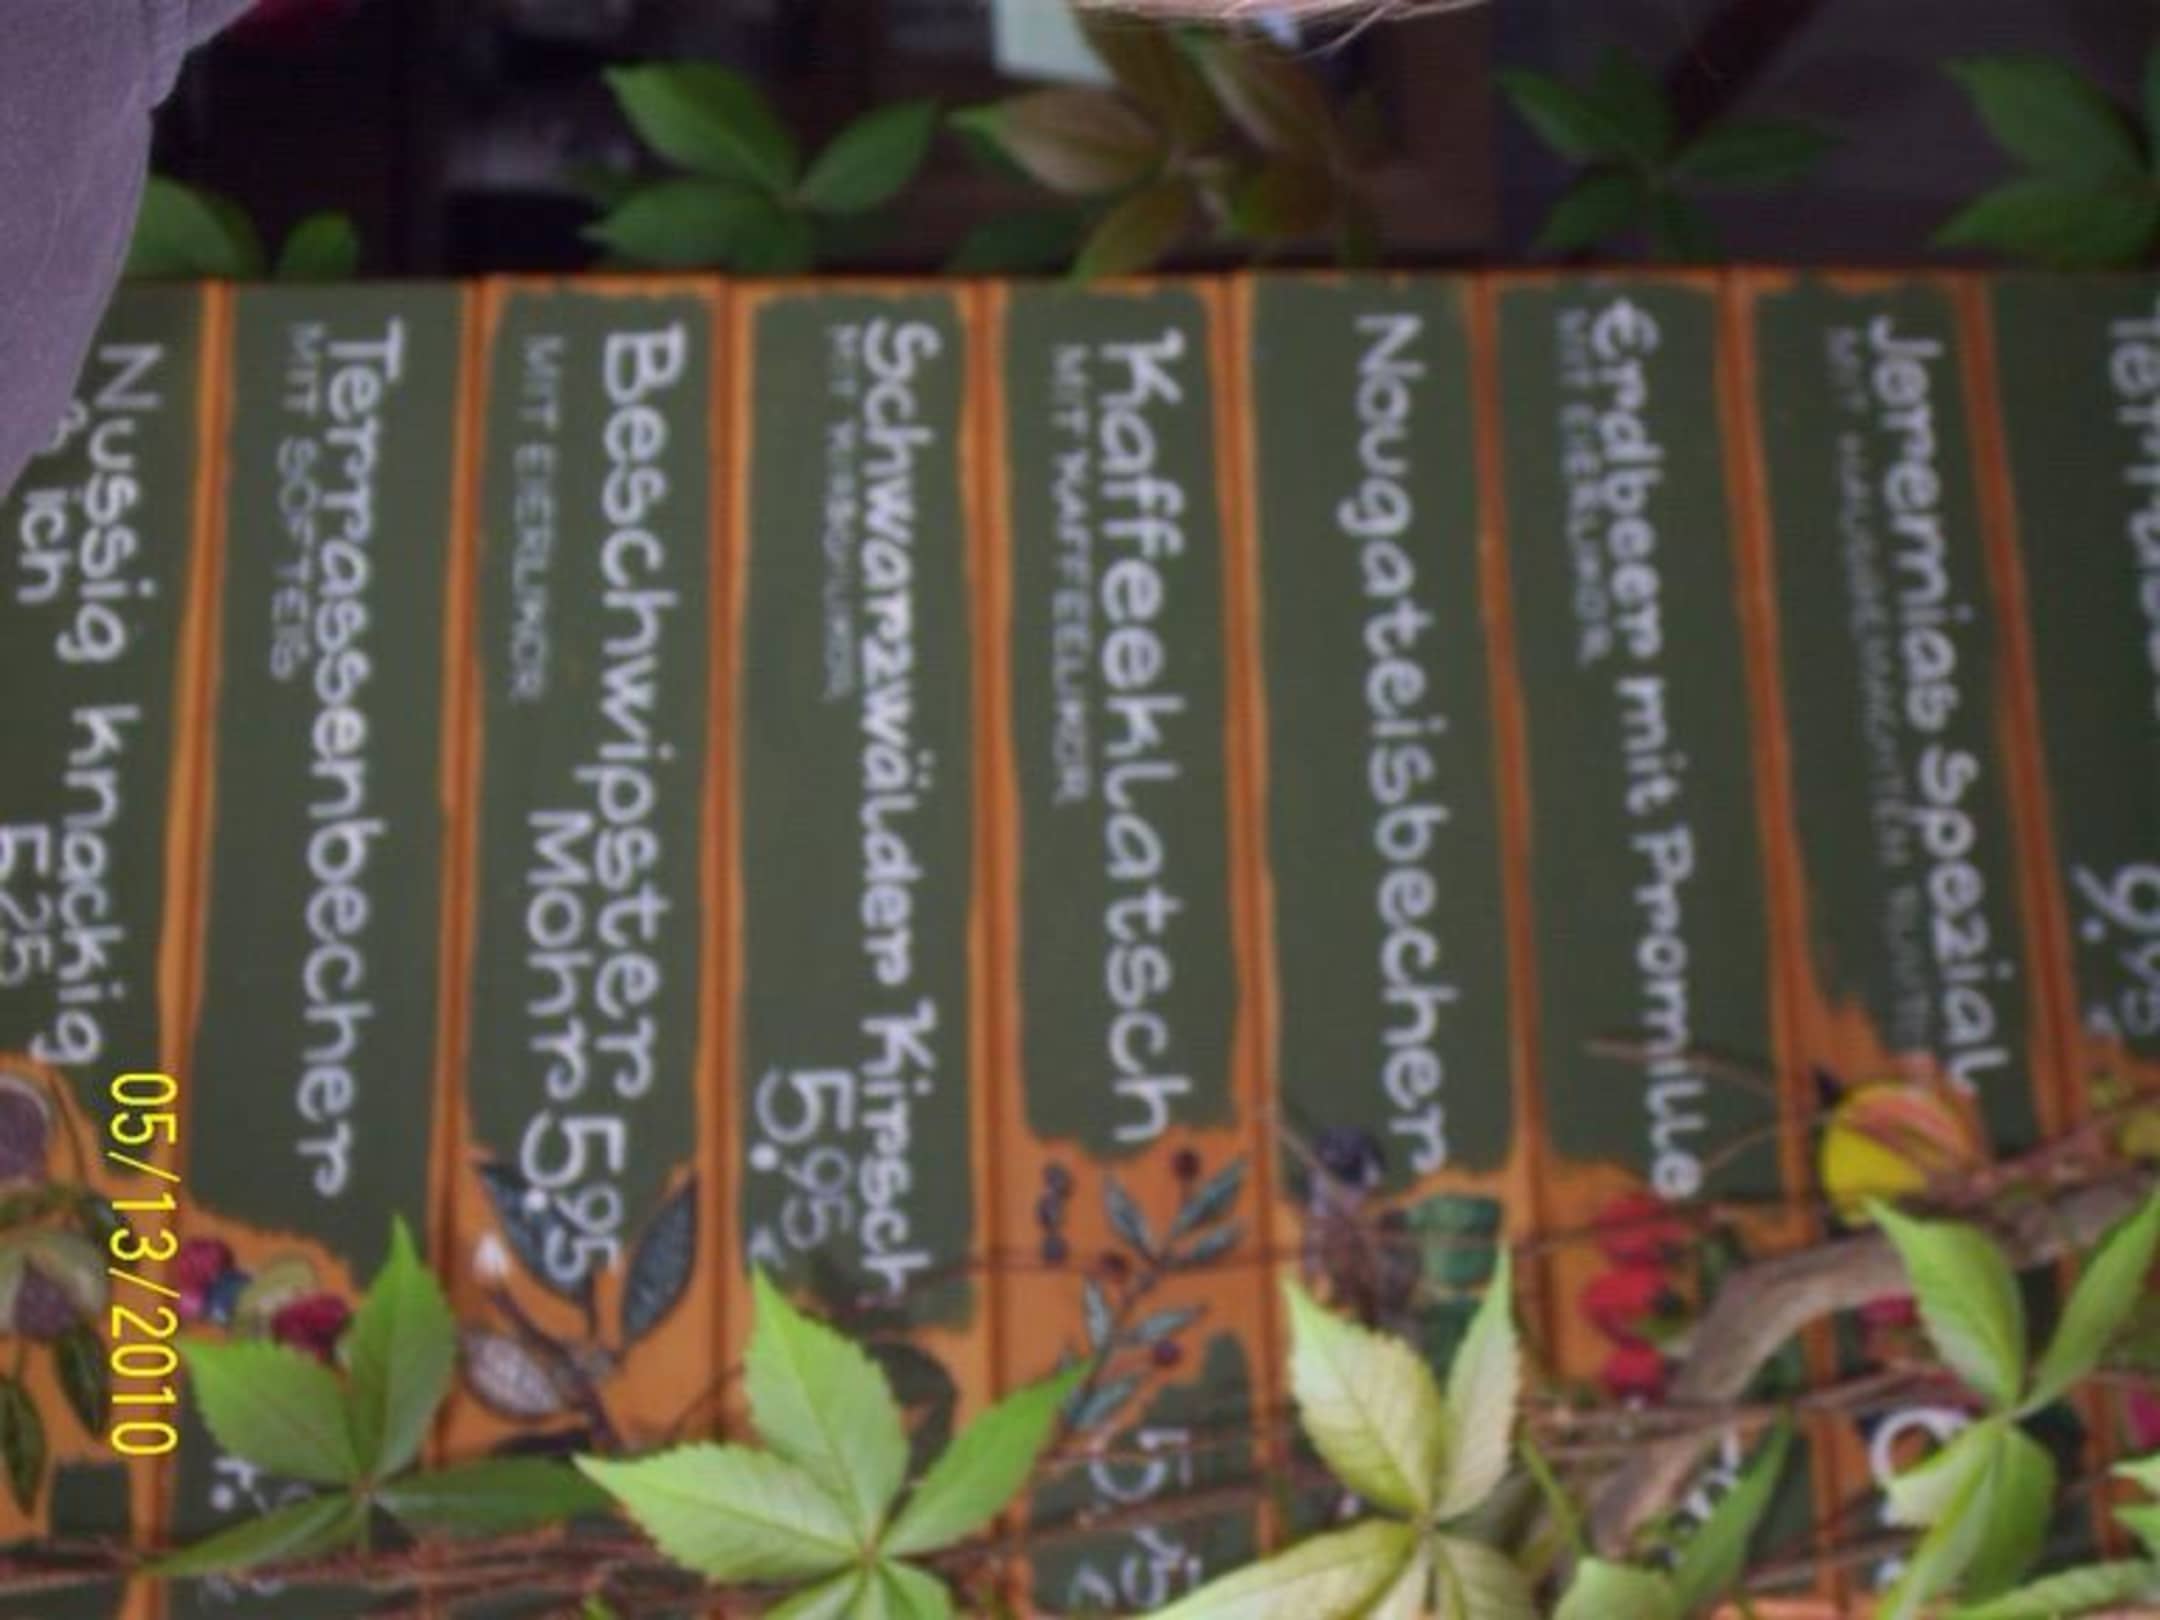 9.95
Jeremias Spezial
MIT
Erdbeer mit Promille
MIT EIERLIKÖR
Nougateisbecher
Kaffeeklatsch
MIT KAFFEELIKÖR
Schwarzwälder Kirsch
MIT KIRSCHLIKÖR 5.95 €
Beschwipster
MIT EIERLIKÖR Mohr 5.95
Terrassenbecher
MIT SOFTEIS
Nussig knackig
ich 5.25
05/13/2010